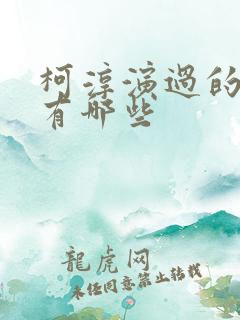 柯淳演過的
有哪些
龍虎网
未经同意禁止转载